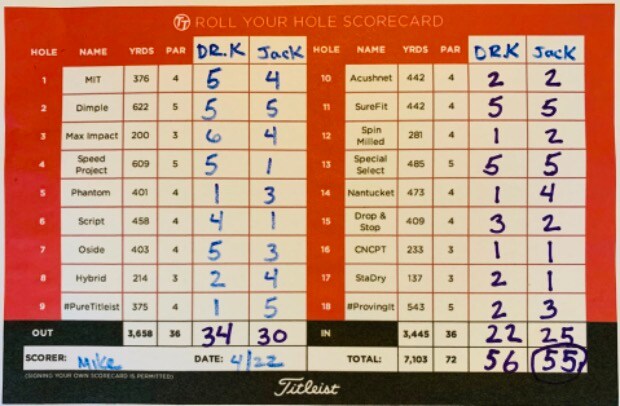 TT ROLL YOUR HOLE SCORECARD
HOLE NAME YRDS PAR DR.K Jack HOLE NAME YRDS PAR DR.K Jack
1 MIT 376 4 5 4 10 Acushnet 442 4 2 2
2 Dimple 622 5 5 5 11 SureFit 442 4 5 5
3 Max Impact 200 3 6 4 12 Spin Milled 281 4 1 2
4 Speed Project 609 5 5 1 13 Special Select 485 5 5 5
5 Phantom 401 4 1 3 14 Nantucket 473 4 1 4
6 Script 458 4 4 1 15 Drop & Stop 409 4 3 2
7 Oside 403 4 5 3 16 CNCPT 233 3 1 1
8 Hybrid 214 3 2 4 17 StaDry 137 3 2 1
9 #PureTitleist 375 4 1 5 18 #ProvingIt 543 5 2 3
OUT 3,658 36 34 30 IN 3,445 36 22 25
SCORER: Mike DATE: 4/22 TOTAL: 7,103 72 56 55
(SIGNING YOUR OWN SCORECARD IS PERMITTED)
Titleist